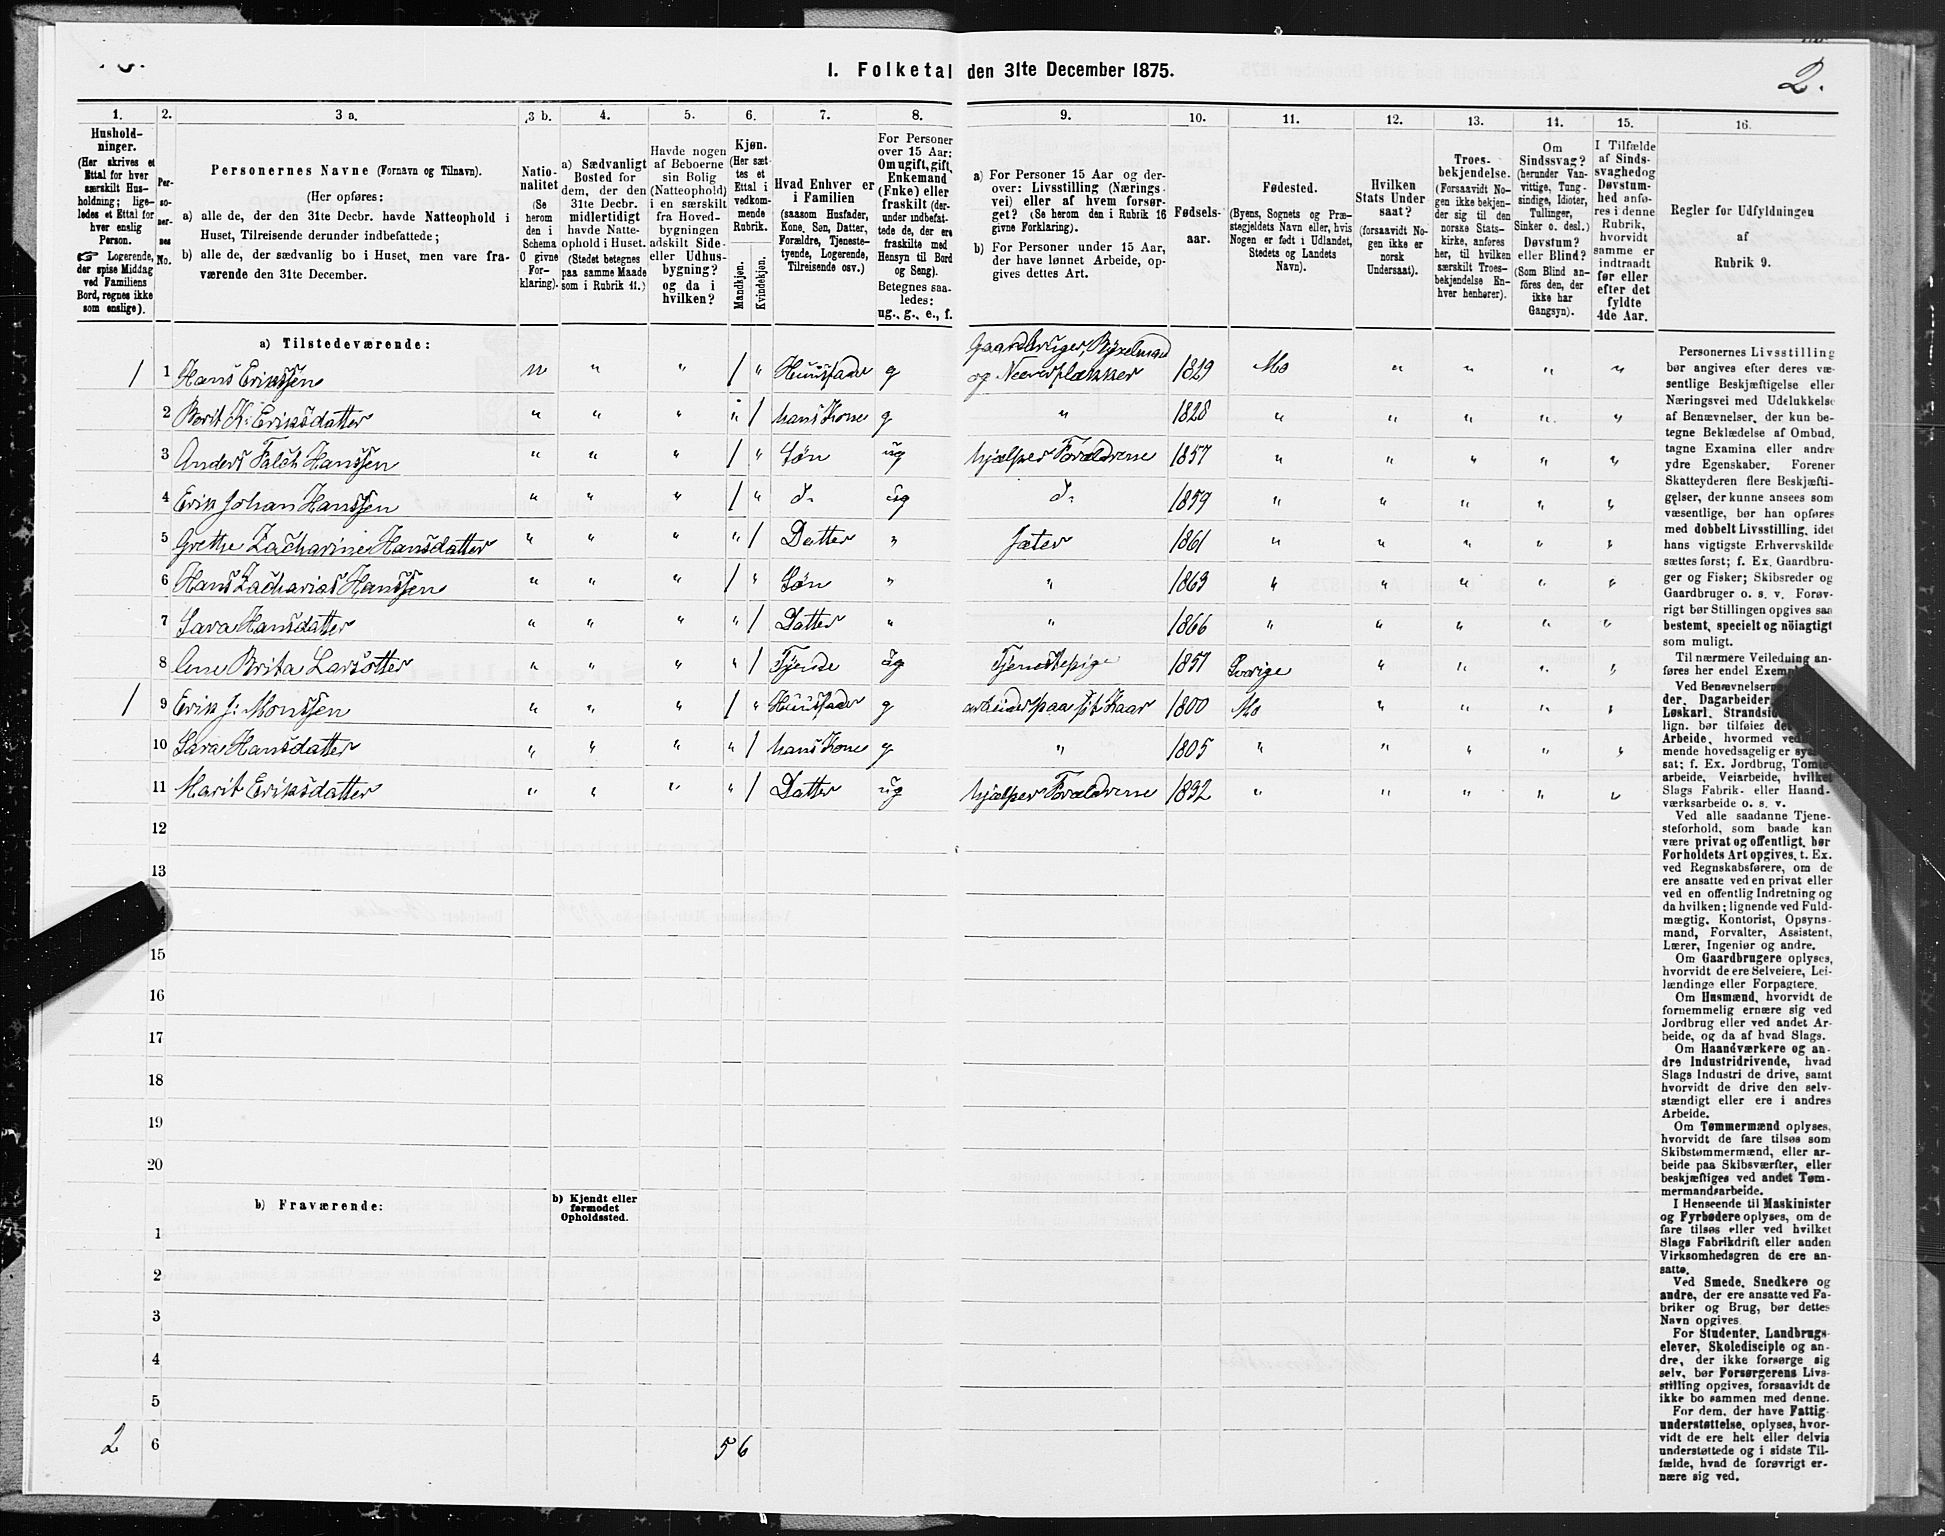 I. Folketal den 31te December 1875.
2.
1.
Hushold-
ninger.
(Her skrives et
Ettal for hver
særskilt Hus-
holdning; lige-
ledes et Ettal for
hver enslig
Person.
☞ Logerende,
der spise Middag
ved Familiens
Bord, regnes ikke
som enslige).
2.
Per-
so-
ner-
nes
No.
3 a.
Personernes Navne (Fornavn og Tilnavn).
(Her opføres:
a) alle de, der den 31te Decbr. havde Natteophold i
Huset, Tilreisende derunder indbefattede;
b) alle de, der sædvanlig bo i Huset, men vare fra-
værende den 31te December.
3 b.
Natio-
nalitet
(Se
herom
den i
Schema
C givne
For-
klaring).
4.
a) Sædvanligt
Bosted for
dem, der den
31te Decbr.
midlertidigt
havde Natte-
ophold i Huset.
(Stedet betegnes
paa samme Maade
som i Rubrik 11.)
5.
Havde nogen
af Beboerne
sin Bolig
(Natteophold)
i en særskilt
fra Hoved-
bygningen
adskilt Side-
eller Udhus-
bygning?
og da i
hvilken?
6.
Kjøn.
(Her sæt-
tes et
Ettal i
vedkom-
mende
Rubrik.
Mandkjøn.
Kvindekjøn.
7.
Hvad Enhver er
i Familien
(saasom Husfader,
Kone, Søn, Datter,
Forældre, Tjeneste-
tyende, Logerende,
Tilreisende osv.)
8.
For Personer
over 15 Aar:
Om ugift, gift,
Enkemand
(Enke) eller
fraskilt (der-
under indbefat-
tede de, der ere
fraskilte med
Hensyn til Bord
og Seng).
Betegnes saa-
ledes:
ug., g., e., f.
9.
a) For Personer 15 Aar og der-
over: Livsstilling (Nærings-
vei) eller af hvem forsør-
get? (Se herom den i Rubrik 16
givne Forklaring).
b) For Personer under 15 Aar,
der have lønnet Arbeide, op-
gives dettes Art.
10.
Fødsels-
aar.
11.
Fødested.
(Byens, Sognets og Præ-
stegjeldets Navn eller, hvis
Nogen er født i Udlandet,
Stedets og Landets
Navn).
12.
Hvilken
Stats Under
saat?
(forsaavidt No-
gen ikke er
norsk
Undersaat).
13.
Troes-
bekjendelse.
(Forsaavidt No-
gen ikke bekjen-
der sig til den
norske Stats-
kirke, anføres
her, til hvilken
særskilt Troes-
bekjendelse En-
hver henhører).
14.
Om
Sindssvag?
(herunder Van-
vittige, Tung-
sindige, Idioter,
Tullinger,
Sinker o. desl.)
Døvstum?
eller Blind?
(Som Blind an-
føres den, der
ikke har
Gangsyn).
15.
I Tilfælde
af Sinds-
svaghed og
Døvstum-
hed anfø-
res i denne
Rubrik,
hvorvidt
samme er
indtraadt
før eller
efter det
fyldte
4de Aar.
16.
Regler for Udfyldningen
af
Rubrik 9.
a) Tilstedeværende:
1 1 Hans Erikssen n " " 1 " Huusfader g Gaardbruger, Bøxelmand
og Næverflækker 1829 Mo " " " "
2 Berit K: Eriksdatter " " " " 1 hans Kone g " 1828 " " " " "
3 Anders Falch Hanssen " " " 1 " Søn ug hjælper Forældrene 1857 " " " " "
4 Erik Johan Hanssen " " " 1 " d: ug d: 1859 " " " " "
5 Grethe Zacharine Hansdatter " " " " 1 Datter " Jæter 1861 " " " " "
6 Hans Zacharias Hanssen " " " 1 " Søn " " 1863 " " " " "
7 Sara Hansdatter " " " " 1 Datter " " 1866 " " " " "
8 Ane Brita Larsdtter " " " " 1 Tjende ug Tjenestepige 1857 Sverige " " " "
1 9 Erik J: Monssen " " " 1 " Huusfader g 1800 Mo " " " "
10 Sara Hansdatter " " " " 1 hans Kone g " 1805 " " " " "
11 Marit Eriksdatter " " " " 1 Datter ug hjælper Forældrene 1832 " " " " "
12
13
15
16
17
18
19
20
b) Fraværende:
b) Kjendt eller
formodet
Opholdssted.
1
2
3
4
5
2 6 5 6
Personernes Livsstilling
bør angives efter deres væ-
sentlige Beskjæftigelse eller
Næringsvei med Udelukkelse
af Benævnelser, der kun be-
tegne Beklædelse af Ombud,
tagne Examina eller andre
ydre Egenskaber. Forener
Skatteyderen flere Beskjæfti-
gelser, der kunne ansees som
væsentlige, bør han opføres
med dobbelt Livsstilling, idet
hans vigtigste Erhvervskilde
sættes først; f. Ex. Gaardbru-
ger og Fisker; Skibsreder og
Gaardbruger o. s. v. Forøv-
rigt bør Stillingen opgives saa
bestemt, specielt og nöiagtigt
som muligt.
Til nærmere Veiledning an-
føres her endel
Ved
der, Dagarbeider
Løskarl,
lign. bør tilføies
Arbeide, hvormed
mende hovedsagelig er
sat; f. Ex. Jordbrug, Tomte-
arbeide, Veiarbeide, hvilket
Slags Fabrik- eller Haand-
værksarbeide o. s. v.
Ved alle saadanne Tjene-
steforhold, som baade kan
være privat og offentligt, bør
Forholdets Art opgives, t. Ex.
ved Regnskabsførere, om de
ere ansatte ved en privat eller
ved en offentlig Indretning og
da hvilken; lignende ved Fuld-
mægtig, Kontorist, Opsyns-
mand, Forvalter, Assistent,
Lærer, Ingeniør og andre.
Om Gaardbrugere oplyses,
hvorvidt de ere Selveiere, Lei-
lændinge eller Forpagtere.
Om Husmænd, hvorvidt de
fornemmelig ernære sig ved
Jordbrug eller ved andet Ar-
beide, og da af hvad Slags.
Om Haandværkere og an-
dre Industridrivende, hvad
Slags Industri de drive, samt
hvorvidt de drive den selv-
stændigt eller ere i andres
Arbeide.
Om Tømmermænd oplyses,
hvorvidt de fare tilsøs som
Skibstømmermænd, eller ar-
beide paa Skibsværfter, eller
beskjæftiges ved andet Tøm-
mermandsarbeide.
I Henseende til Maskinister
og Fyrbødere oplyses, om de
fare tilsøs eller ved hvilket
Slags Fabrikdrift eller anden
Virksomhedsgren de ere an-
satte.
Ved Smede, Snedkere og
andre, der ere ansatte ved Fa-
briker og Brug, bør dettes
Navn opgives.
For Studenter, Landbrugs-
elever, Skoledisciple og an-
dre, der ikke forsørge sig
selv, bør Forsørgerens Livs-
stilling opgives, forsaavidt de
ikke bo sammen med denne.
For dem, der have Fattig-
understøttelse, oplyses, hvor-
vidt de ere helt eller delvis
understøttede og i sidste Til-
fælde, hvad de forøvrigt er-
nære sig ved.